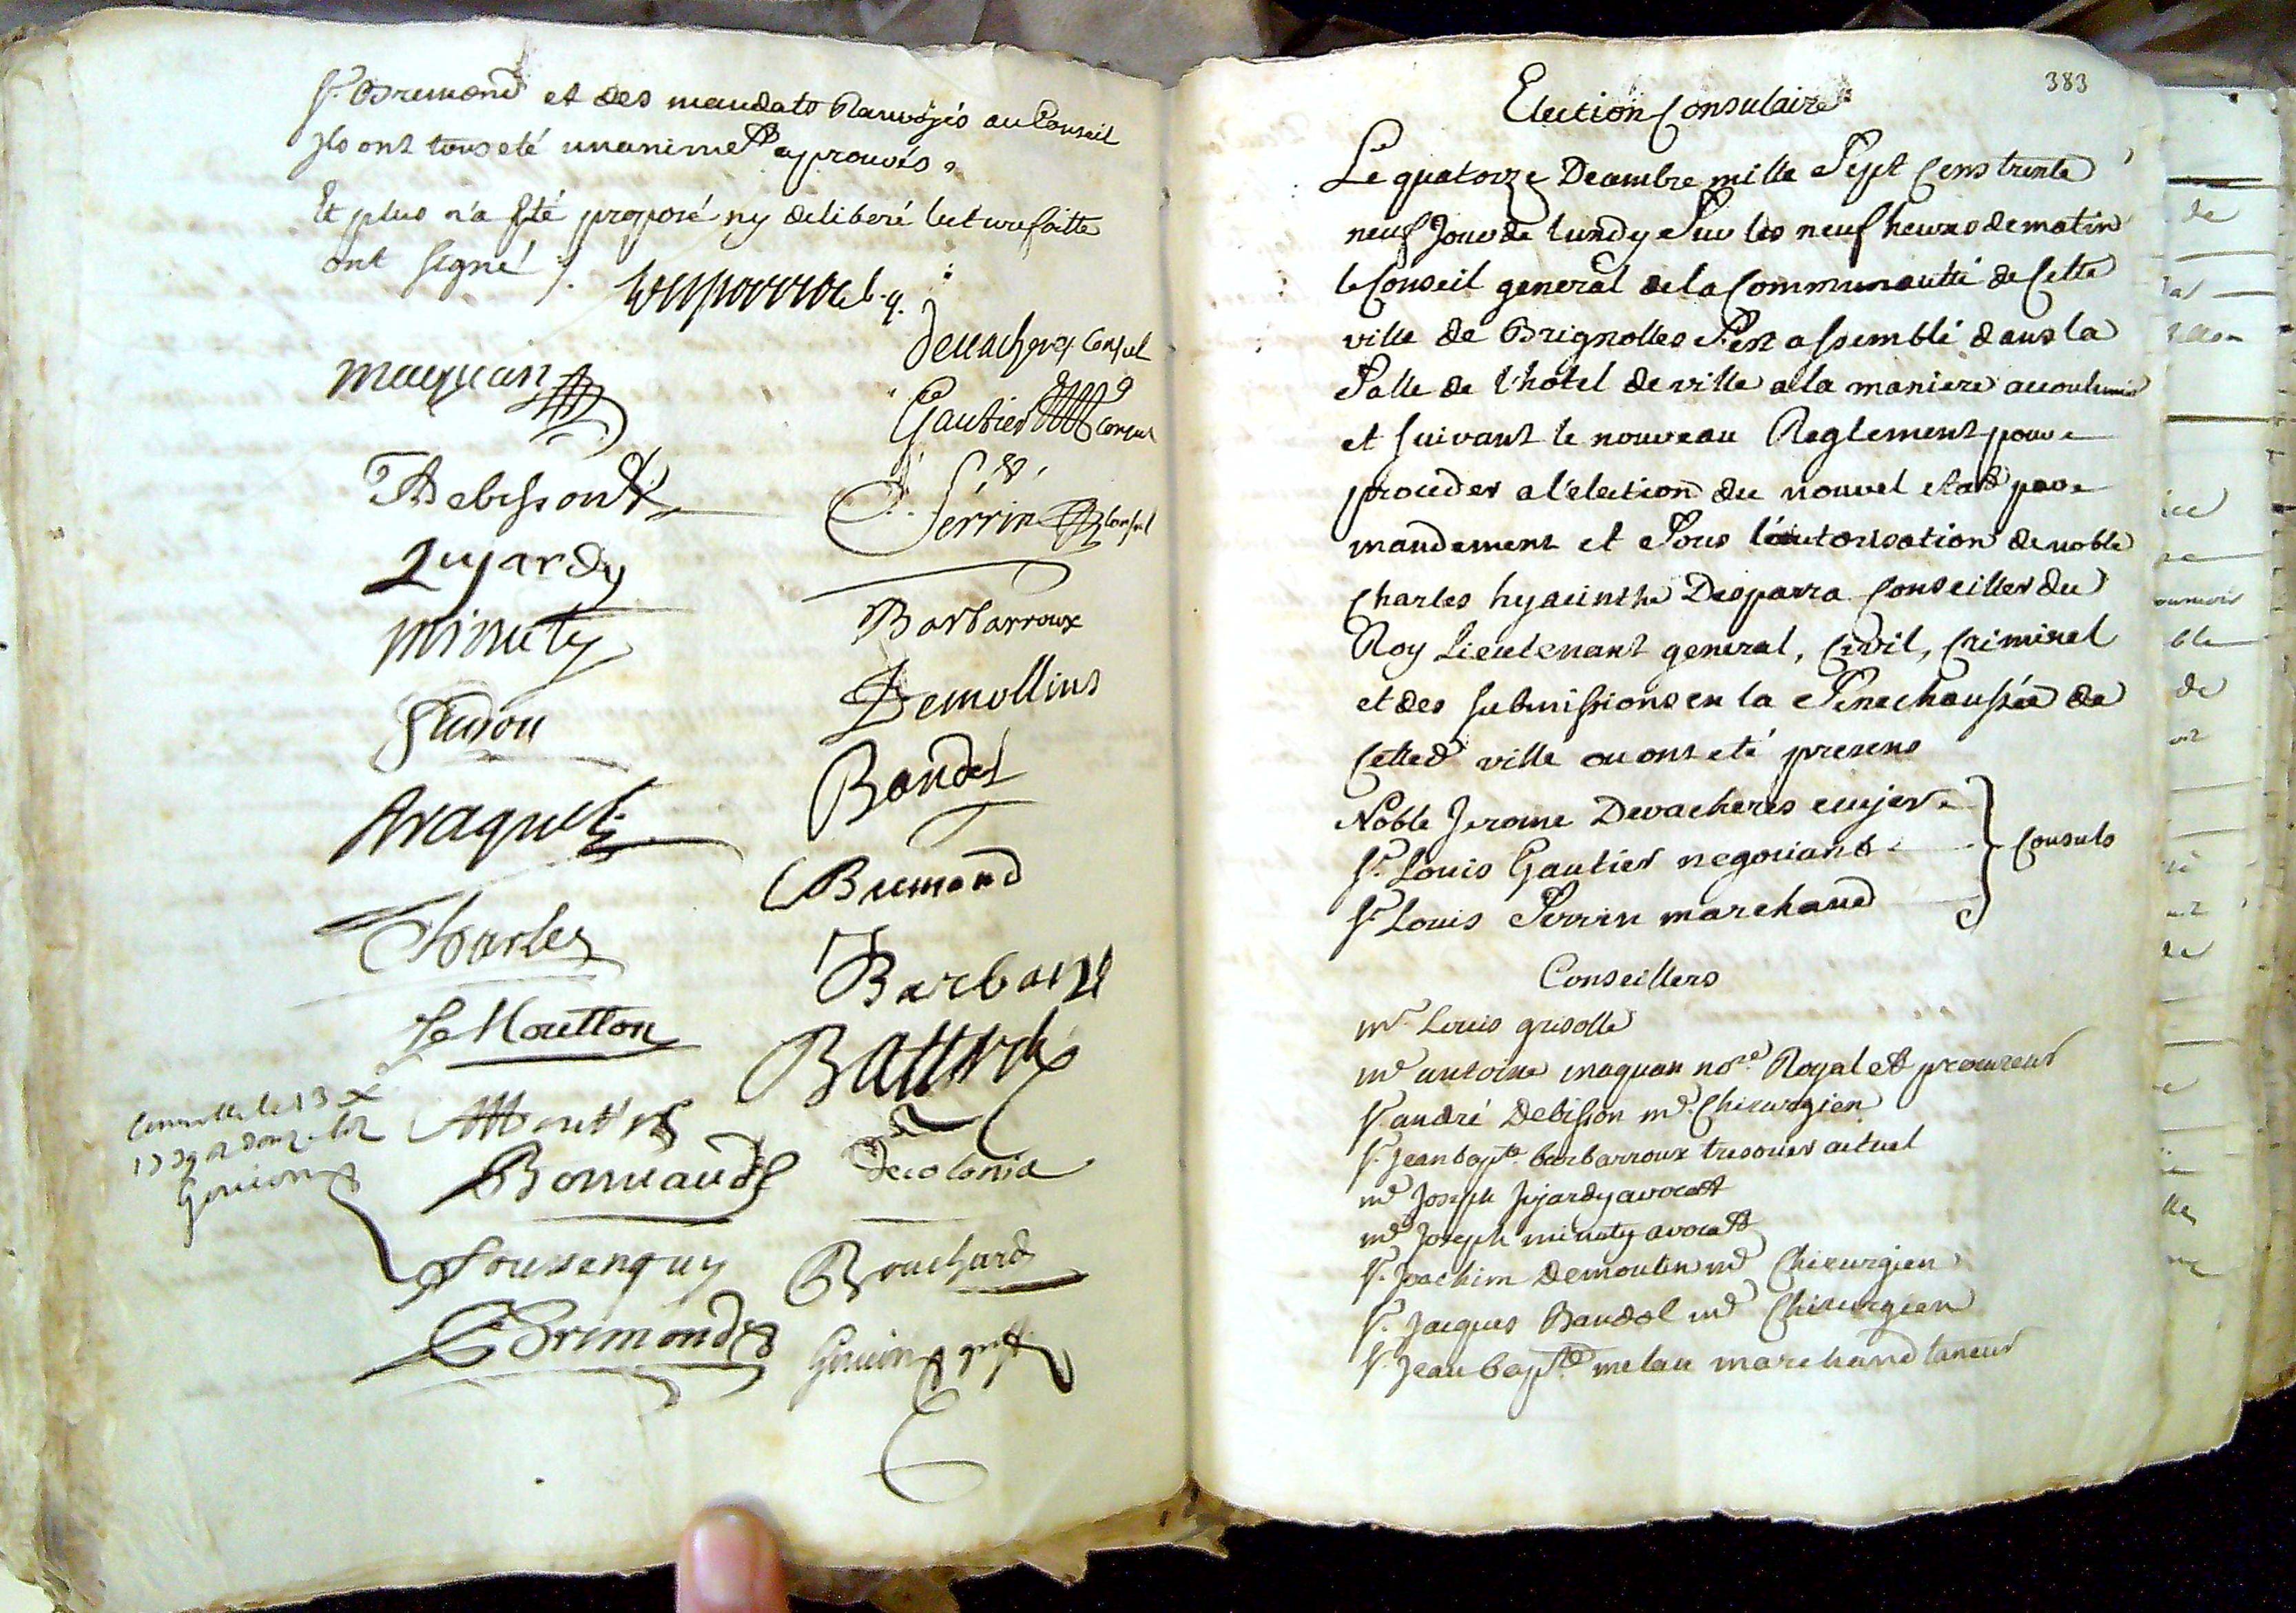 Sr. Bremond et des mandats Ranvoyés au Conseil
Ils ont tous eté unanimet aprouvés,
Et plus n'a Eté proposé ny deliberé lecture faitte
ont signé
Devacheres Consul
Maquan
Gautier Consul
Debisson
Perrin Consul
Jujardy
Barbarroux
Minuty
Demollins
Bandol
Braquety
Bremond
Charles
Barbaroux
Le Moutton
Controllé le 13 Xe
1739 R douze sols
Gouion
Decolonia
Bonnaud
Foussenquy
Brouchard
Brimond
Gouion greff
383
Election Consulaire
Le quatorze Decembre mille Sept Cens trente
neuf Jour de lundy Sur les neuf heures de matin
le Conseil general de la Communautté de Cette
ville de Brignolles S'est assemblé dans la
Salle de l'hôtel de ville a la maniere accoutumée
et suivant le nouveau Reglement pour
proceder a l'election du nouvel etat par
mandement et Sous l'autorisation de noble
Charles hyacinthe Desparra Conseiller du
Roy Lieutenant general, Civil, Criminel
et des submissions en la Senechaussée de
Cetted ville ou ont eté presens
Noble Jerome Devacheres ecuyer
Sr. Louis Gautier negociant
Consuls
Sr. Louis Perrin marchand
Conseillers
me. Louis grisolle
me antoine maquan nore. Royal et procureur
Sr. andré Debisson me. Chirurgien
Sr. Jean bapte. barbarroux tresorier actuel
me Joseph Jujardy avocat
me Joseph minuty avocat
Sr. Joachim Demoulin me Chirurgien
Sr. Jacques Bandol me Chirurgien
Sr. Jean bapte. melan marchand taneur